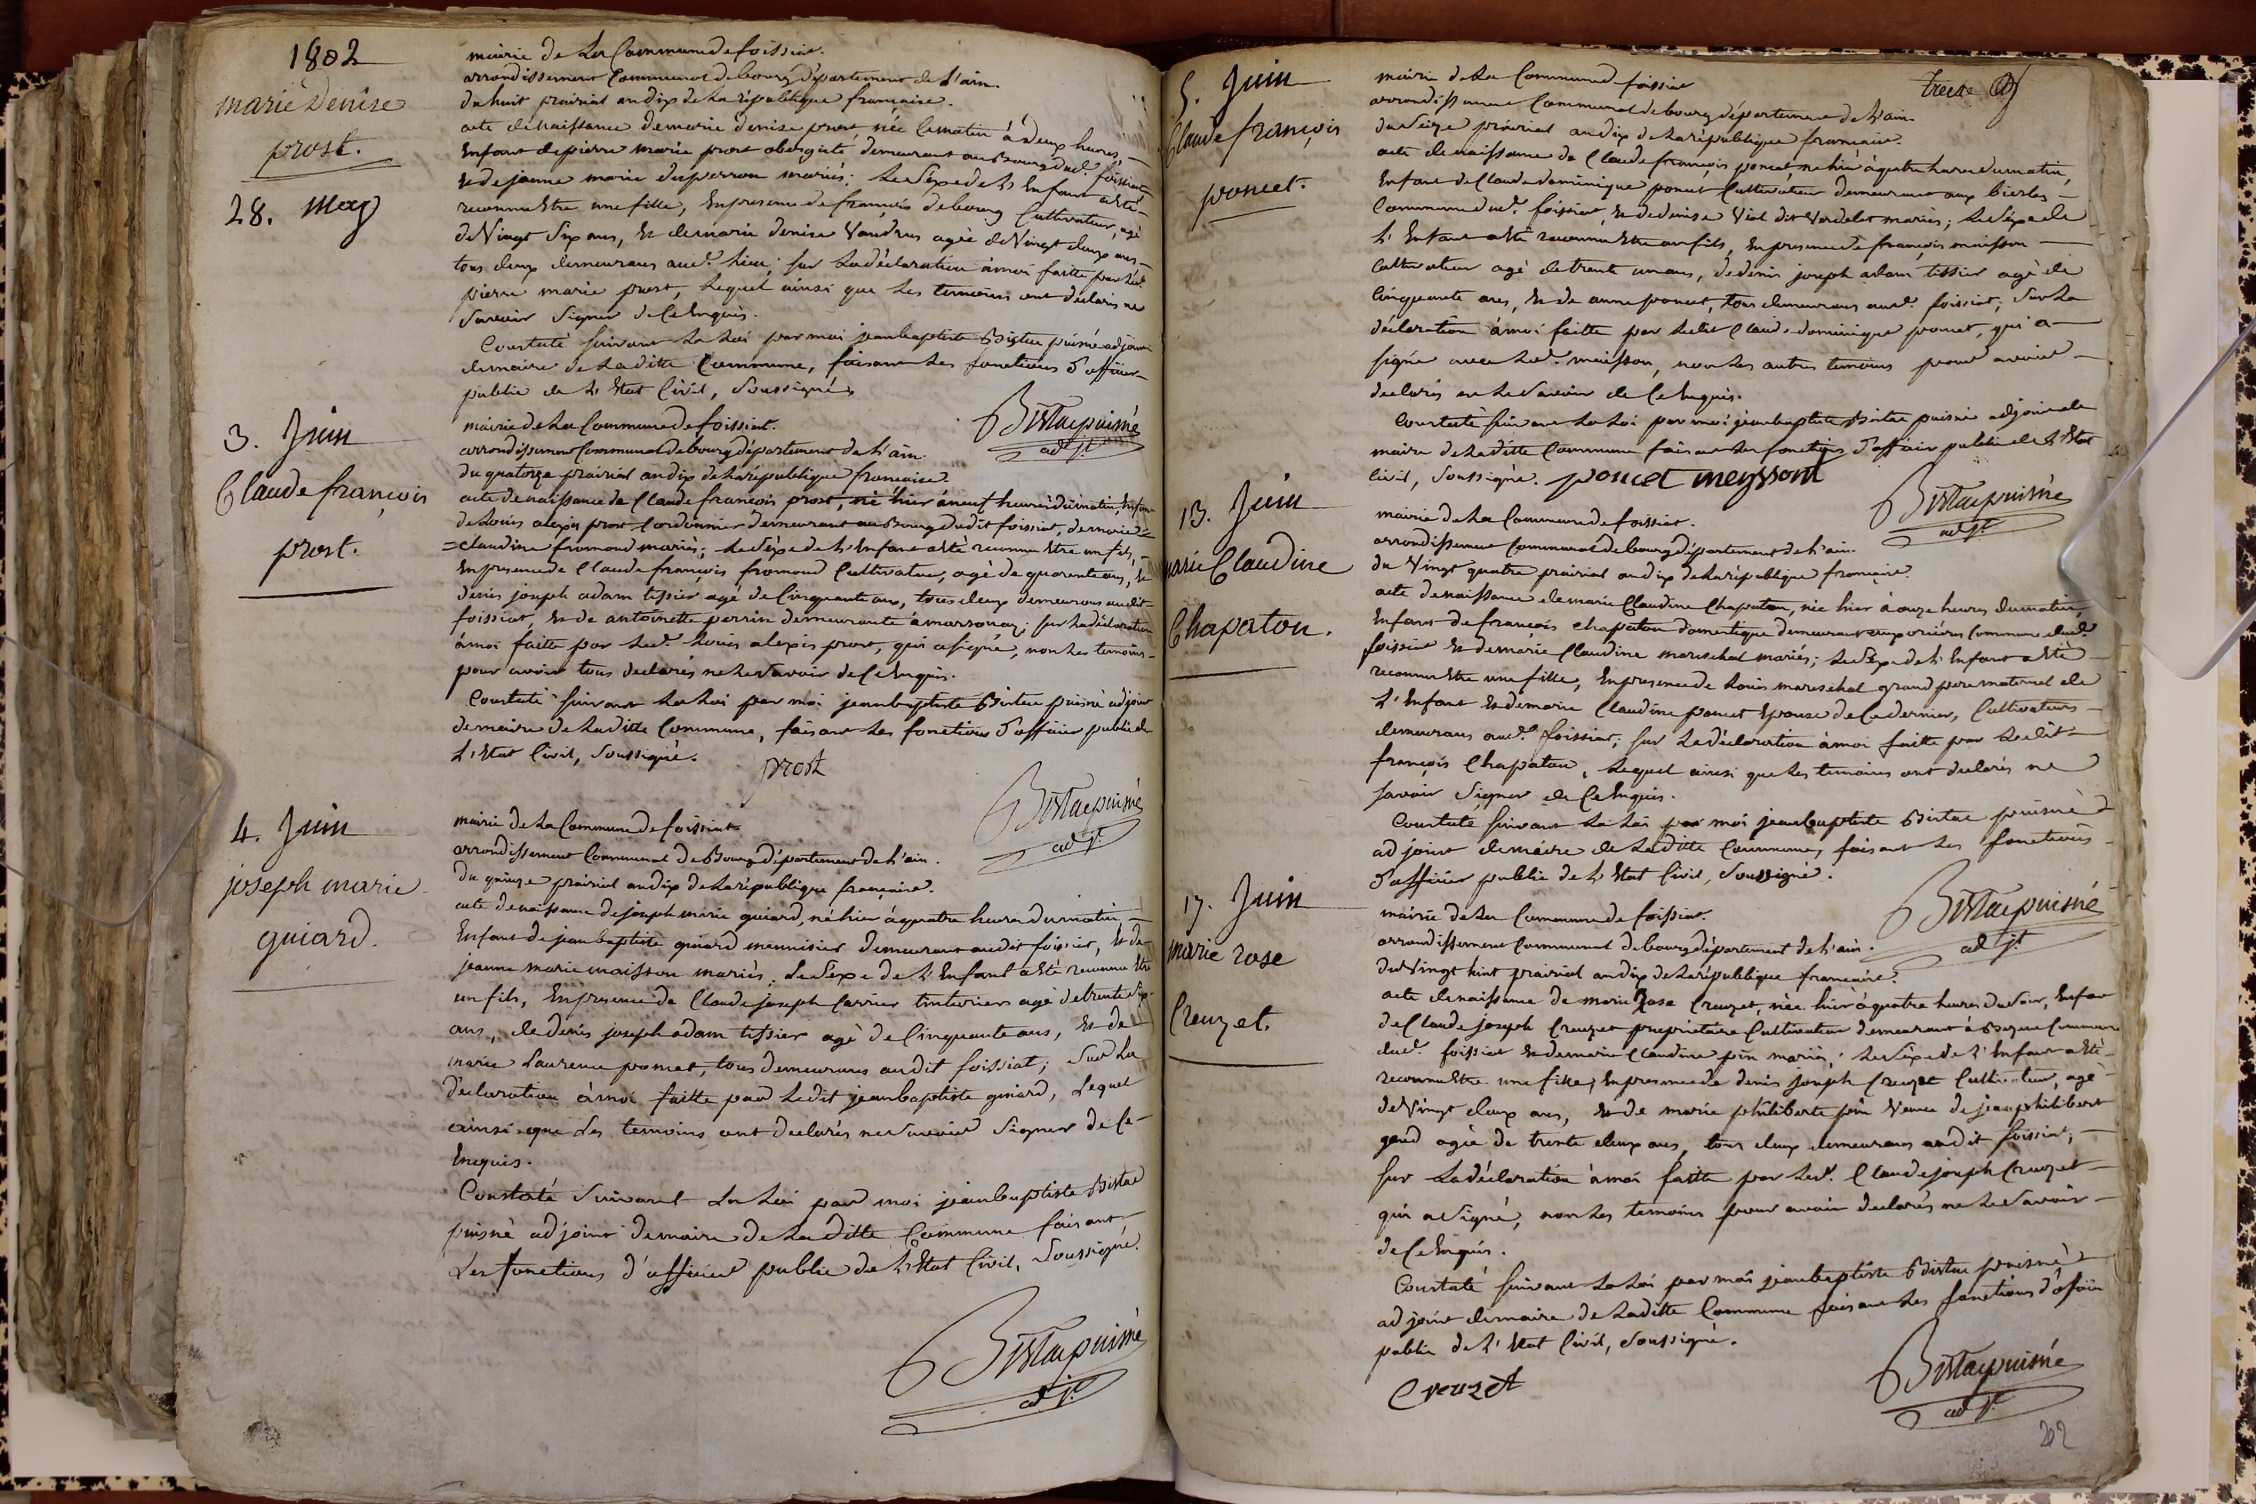 1802
marie Denise
prost.
28. May
mairie de La Commune de foissiat.
arrondissement Communal de bourg département de L'ain.
du huit prairial an dix de La république française.
acte de Naissance de marie denise prost, née le matin à deux heures,
Enfant de pierre marie prost demeurant au Bourg dud.t foissiat
et de jeanne marie duperron mariés; Le Sexe de L'Enfant a été
reconnu Etre une fille, En presence de françois debourg Cultivateur, agé
de Vingt Six ans, et de marie denise agée de Vingt deux ans
tous deux demeurans aud.t Lieu; sur La déclaration à moi faitte par Led.t
pierre marie prost, Lequel ainsi que Les temoins ont déclarés ne
Savoir Signer de Ce Enquis.
Constaté suivant La Loi par moi jeanbaptiste Bistac puisné adjoint
de maire de La ditte Commune, faisant Les fonctions d'officier
public de L'Etat Civil, Soussigné
Bistac puisné
adj.t
3. Juin
Claude françois
prost.
mairie de La Commune de foissiat.
arrondissement Communal de bourg département de L'ain.
du quatorze prairial an dix de La république française.
acte de naissance de Claude françois prost, né hier à neuf heures du matin, Enfan
de Louis alexis prost Cordonnier demeurant au Bourg dudit foissiat, de marie
=claudine fromond mariés; Le Sexe de L'Enfant a été reconnu Etre un fils,
En presence de Claude françois fromond Cultivateur, agé de quarente ans, de
denis joseph adam tissier agé de Cinquante ans, tous deux demeurans audit
foissiat, et de antoinette perrin demeurante à marsonay; sur La déclaration
à moi faitte par Led.t Louis alexis prost, qui a signé, non Les temoins
pour avoir tous déclarés ne Le Savoir de Ce Enquis.
Constaté suivant La Loi par moi jeanbaptiste Bistac puisné adjoint
de maire de La ditte Commune, faisant Les fonctions d'officier public de
L'Etat Civil, Soussigné.
prost
Bistac puisné
adj.t
4. Juin
joseph marie
guiard.
mairie de La Commune de foissiat
arrondissement Communal de Bourg département de L'ain.
du quinze prairial an dix de La république française.
acte de naissance de joseph marie guiard, né hier à quatre heures du matin
Enfant de jeanbaptiste guiard menuisier demeurant audit foissiat, et de
jeanne marie maisson mariés. Le Sexe de L'Enfant a été reconnu Etre
un fils, En presence de Claude joseph Carrier teinturier agé de trente Six
ans, de denis joseph adam tissier agé de Cinquante ans, et de
marie Laurence poncet, tous demeurans audit foissiat; sur La
déclaration à moi faitte par Ledit jeanbaptiste guiard, Lequel
ainsi que Les temoins ont déclarés ne Savoir Signer de Ce
Enquis.
Constaté Suivant La Loi par moi jeanbaptiste Bistac
puisné adjoint de maire de La ditte Commune faisant
Les fonctions d'officier public de L'Etat Civil, Soussigné.
Bistac puisné
adj.t
treize
5. Juin
Claude françois
poncet.
mairie de La Commune de foissiat
arrondissement Communal de bourg département de L'ain.
du Seize prairial an dix de La république française.
acte de naissance de Claude françois poncet, né hier à quatre heures du matin,
Enfant de Claude dominique poncet Cultivateur demeurant aux
Commune dud.t foissiat, et de denise Vial dit Verdelet mariés; Le Sexe de
L'Enfant a été reconnu Etre un fils, En presence de françois maisson
Cultivateur agé de trente un ans, de denis joseph adam tissier agé de
Cinquante ans, et de anne poncet, tous demeurans aud.t foissiat; Sur La
déclaration à moi faitte par Ledit Claude dominique poncet, qui a
signé avec Led.t maisson, non Les autres temoins pour avoir
déclarés ne Le Savoir de Ce Enquis.
Constaté suivant La Loi par moi jeanbaptiste Bistac puisné adjoint de
maire de La ditte Commune faisant Les fonctions d'officier public de L'Etat
Civil, Soussigné. poncet meyssont
Bistac puisné
adj.t
13. Juin
marie Claudine
Chapaton.
mairie de La Commune de foissiat.
arrondissement Communal de bourg département de L'ain.
du Vingt quatre prairial an dix de La république française.
acte de naissance de marie Claudine Chapaton, née hier à onze heures du matin,
Enfant de françois chapaton domestique demeurant Commune dud.t
foissiat et de marie Claudine mareschal mariés; Le Sexe de L'Enfant a été
reconnu Etre une fille, En presence de Louis mareschal grand pere maternel de
L'Enfant et de marie Claudine poncet Epouse de Ce dernier, Cultivateurs
demeurans aud.t foissiat; sur La déclaration à moi faitte par Ledit
françois Chapaton, Lequel ainsi que Les temoins ont déclarés ne
Savoir Signer de Ce Enquis.
Constaté suivant La Loi par moi jeanbaptiste Bistac puisné
adjoint de maire de La ditte Commune, faisant Les fonctions
d'officier public de L'Etat Civil, Soussigné.
Bistac puisné
adj.t
17. Juin
marie rose
Creuzet.
mairie de La Commune de foissiat.
arrondissement Communal de bourg département de L'ain.
du Vingt huit prairial an dix de La république française.
acte de naissance de marie Rose Creuzet, née hier à quatre heures du Soir, Enfan
de Claude joseph Creuzet proprietaire Cultivateur demeurant à Commune
dud.t foissiat et de marie Claudine pin mariés; Le Sexe de L'Enfant a été
reconnu Etre une fille, En presence de denis joseph Creuzet Cultivateur, agé
de Vingt deux ans, et de marie philiberte pin Veuve de jean philibert
agée de trente deux ans, tous deux demeurans audit foissiat;
sur La déclaration à moi faitte par Led.t Claude joseph Creuzet
qui a signé, non Les temoins pour avoir déclarés ne Le Savoir
de Ce Enquis.
Constaté suivant La Loi par moi jeanbaptiste Bistac puisné
adjoint de maire de La ditte Commune faisant Les fonctions d'officier
public de L'Etat Civil, Soussigné.
Creuzet
Bistac puisné
adj.t
202